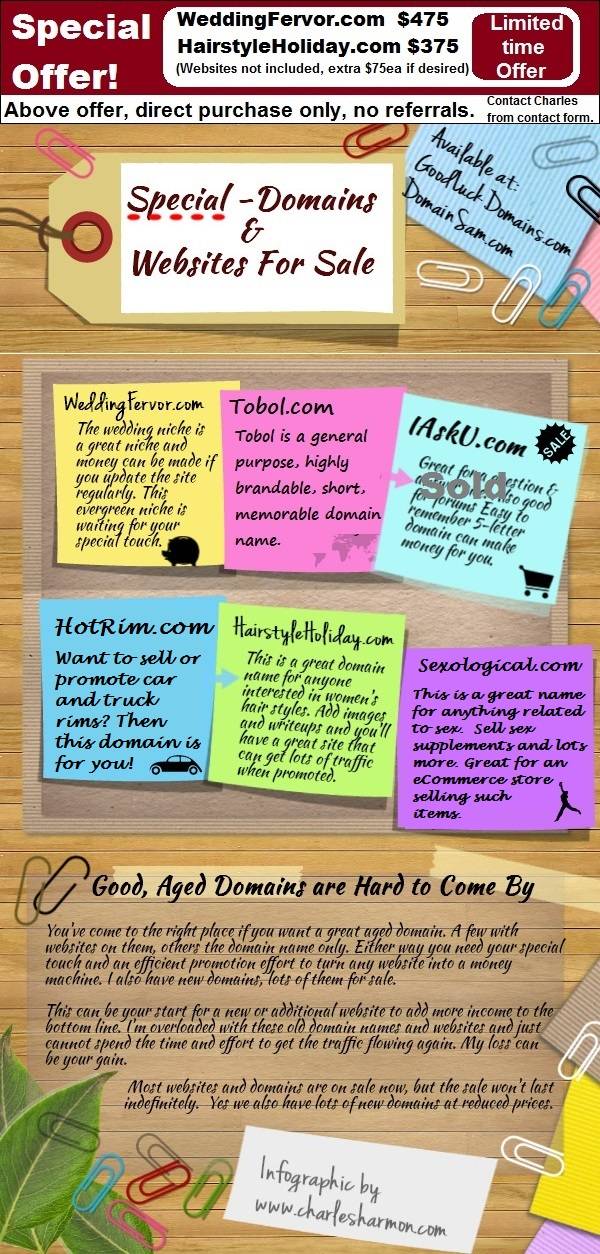 Special
Offer!
WeddingFervor.com $475
HairstyleHoliday.com $375
(Websites not included, extra $75ea if desired)
Limited
time
Offer
Above offer, direct purchase only, no referrals.
Contact Charles
from contact form.
Special -Domains
&
Websites For Sale
Available at:
GoodLuck Domains.com
DomainSam.com
WeddingFervor.com
The wedding niche is
a great niche and
money can be made if
you update the site
regularly. This
evergreen niche is
waiting for your
special touch.
Tobol.com
Tobol is a general
purpose, highly
brandable, short,
memorable domain
name.
IAskU.com
SALE
Great for estion &
also good
for forums Easy to
remember 5-letter
domain can make
money for you.
Sold
HotRim.com
Want to sell or
promote car
and truck
rims? Then
this domain is
for you!
HairstyleHoliday.com
This is a great domain
name for anyone
interested in women's
hair styles. Add images
and writeups and you'll
have a great site that
can get lots of traffic
when promoted.
Sexological.com
This is a great name
for anything related
to sex. Sell sex
supplements and lots
more. Great for an
eCommerce store
selling such
items.
Good, Aged Domains are Hard to Come By
You've come to the right place if you want a great aged domain. A few with
websites on them, others the domain name only. Either way you need your special
touch and an efficient promotion effort to turn any website into a money
machine. I also have new domains, lots of them for sale.
This can be your start for a new or additional website to add more income to the
bottom line. I'm overloaded with these old domain names and websites and just
cannot spend the time and effort to get the traffic flowing again. My loss can
be your gain.
Most websites and domains are on sale now, but the sale won't last
indefinitely. Yes we also have lots of new domains at reduced prices.
Infographic by
www.charlesharmon.com